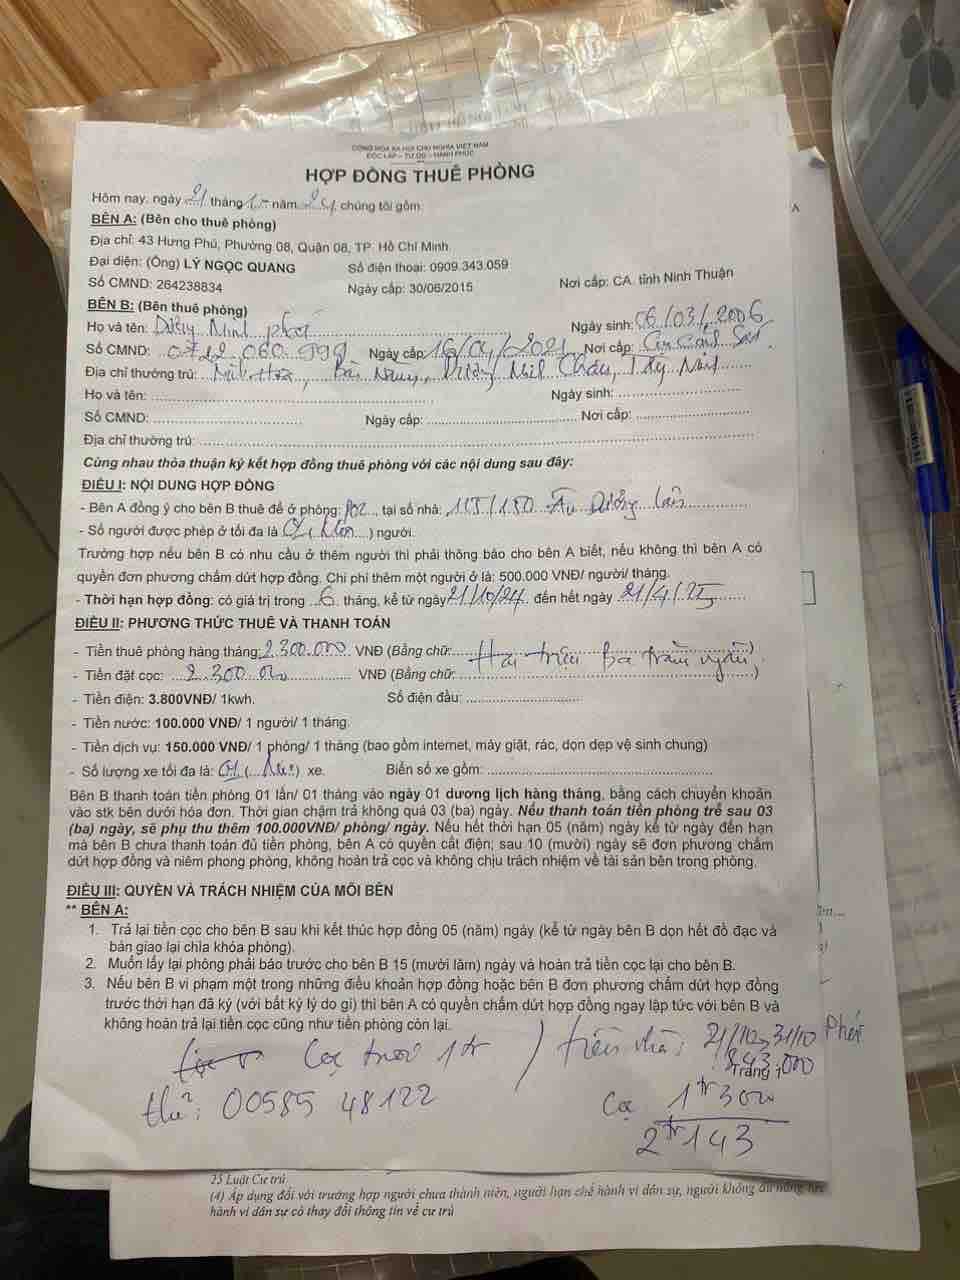 CỘNG HÒA XÃ HỘI CHỦ NGHĨA VIỆT NAM
ĐỘC LẬP – TỰ DO – HẠNH PHÚC
HỢP ĐỒNG THUÊ PHÒNG
Hôm nay, ngày 21 tháng năm 24 chúng tôi gồm:
BÊN A: (Bên cho thuê phòng)
Địa chỉ: 43 Hưng Phú, Phường 08, Quận 08, TP. Hồ Chí Minh
Đại diện: (Ông) LÝ NGỌC QUANG Số điện thoại: 0909.343.059
Số CMND: 264238834 Ngày cấp: 30/06/2015 Nơi cấp: CA. tỉnh Ninh Thuận
BÊN B: (Bên thuê phòng)
Họ và tên: Minh Ngày sinh: 06/03/2006
Số CMND: Ngày cấp: 16/04/2021 Nơi cấp:
Địa chỉ thường trú: Minh Châu, Tây Ninh
Họ và tên: Ngày sinh:
Số CMND: Ngày cấp: Nơi cấp:
Địa chỉ thường trú:
Cùng nhau thỏa thuận ký kết hợp đồng thuê phòng với các nội dung sau đây:
ĐIỀU I: NỘI DUNG HỢP ĐỒNG
- Bên A đồng ý cho bên B thuê để ở phòng: tại số nhà: Âu Dương Lân
- Số người được phép ở tối đa là 01 ) người.
Trường hợp nếu bên B có nhu cầu ở thêm người thì phải thông báo cho bên A biết, nếu không thì bên A có
quyền đơn phương chấm dứt hợp đồng. Chi phí thêm một người ở là: 500.000 VNĐ/ người/ tháng.
- Thời hạn hợp đồng: có giá trị trong 6 tháng, kể từ ngày 21/10/24 đến hết ngày 21/4/25
ĐIỀU II: PHƯƠNG THỨC THUÊ VÀ THANH TOÁN
- Tiền thuê phòng hàng tháng: 2.300.000 VNĐ (Bằng chữ: Hai triệu ba trăm ngàn )
- Tiền đặt cọc: 2.300.000 VNĐ (Bằng chữ: )
- Tiền điện: 3.800VNĐ/ 1kwh. Số điện đầu:
- Tiền nước: 100.000 VNĐ/ 1 người/ 1 tháng.
- Tiền dịch vụ: 150.000 VNĐ/ 1 phòng/ 1 tháng (bao gồm internet, máy giặt, rác, dọn dẹp vệ sinh chung)
- Số lượng xe tối đa là: 01 ( ) xe. Biển số xe gồm:
Bên B thanh toán tiền phòng 01 lần/ 01 tháng vào ngày 01 dương lịch hàng tháng, bằng cách chuyển khoản
vào stk bên dưới hóa đơn. Thời gian chậm trả không quá 03 (ba) ngày. Nếu thanh toán tiền phòng trễ sau 03
(ba) ngày, sẽ phụ thu thêm 100.000VNĐ/ phòng/ ngày. Nếu hết thời hạn 05 (năm) ngày kể từ ngày đến hạn
mà bên B chưa thanh toán đủ tiền phòng, bên A có quyền cắt điện; sau 10 (mười) ngày sẽ đơn phương chấm
dứt hợp đồng và niêm phong phòng, không hoàn trả cọc và không chịu trách nhiệm về tài sản bên trong phòng.
ĐIỀU III: QUYỀN VÀ TRÁCH NHIỆM CỦA MỖI BÊN
** BÊN A:
1. Trả lại tiền cọc cho bên B sau khi kết thúc hợp đồng 05 (năm) ngày (kể từ ngày bên B dọn hết đồ đạc và
bàn giao lại chìa khóa phòng).
2. Muốn lấy lại phòng phải báo trước cho bên B 15 (mười lăm) ngày và hoàn trả tiền cọc lại cho bên B.
3. Nếu bên B vi phạm một trong những điều khoản hợp đồng hoặc bên B đơn phương chấm dứt hợp đồng
trước thời hạn đã ký (với bất kỳ lý do gì) thì bên A có quyền chấm dứt hợp đồng ngay lập tức với bên B và
không hoàn trả lại tiền cọc cũng như tiền phòng còn lại.
Cọc trước 1tr ) tiền nhà: 21/10 31/10
843.000
Trang 1
thẻ: 00585 48122 Cọc 1tr300
2tr143
25 Luật Cư trú
(4) Áp dụng đối với trường hợp người chưa thành niên, người hạn chế hành vi dân sự, người không đủ năng lực
hành vi dân sự có thay đổi thông tin về cư trú